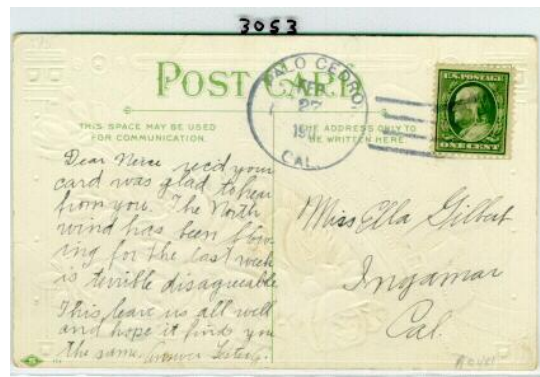 3053
POST CARD
PALO CEDRO,
APR
27
191
CAL.
U.S. POSTAGE
ONE CENT
THIS SPACE MAY BE USED
FOR COMMUNICATION.
THE ADDRESS ONLY TO
BE WRITTEN HERE
Dear Niece recid your
card was glad to hear
from you. The North
wind has been blow
ing for the last week
is terible disagreeable
This leave us all well
and hope it finds you
the same. Answer
Miss Ella Gilbert
Ingamar
Cal.